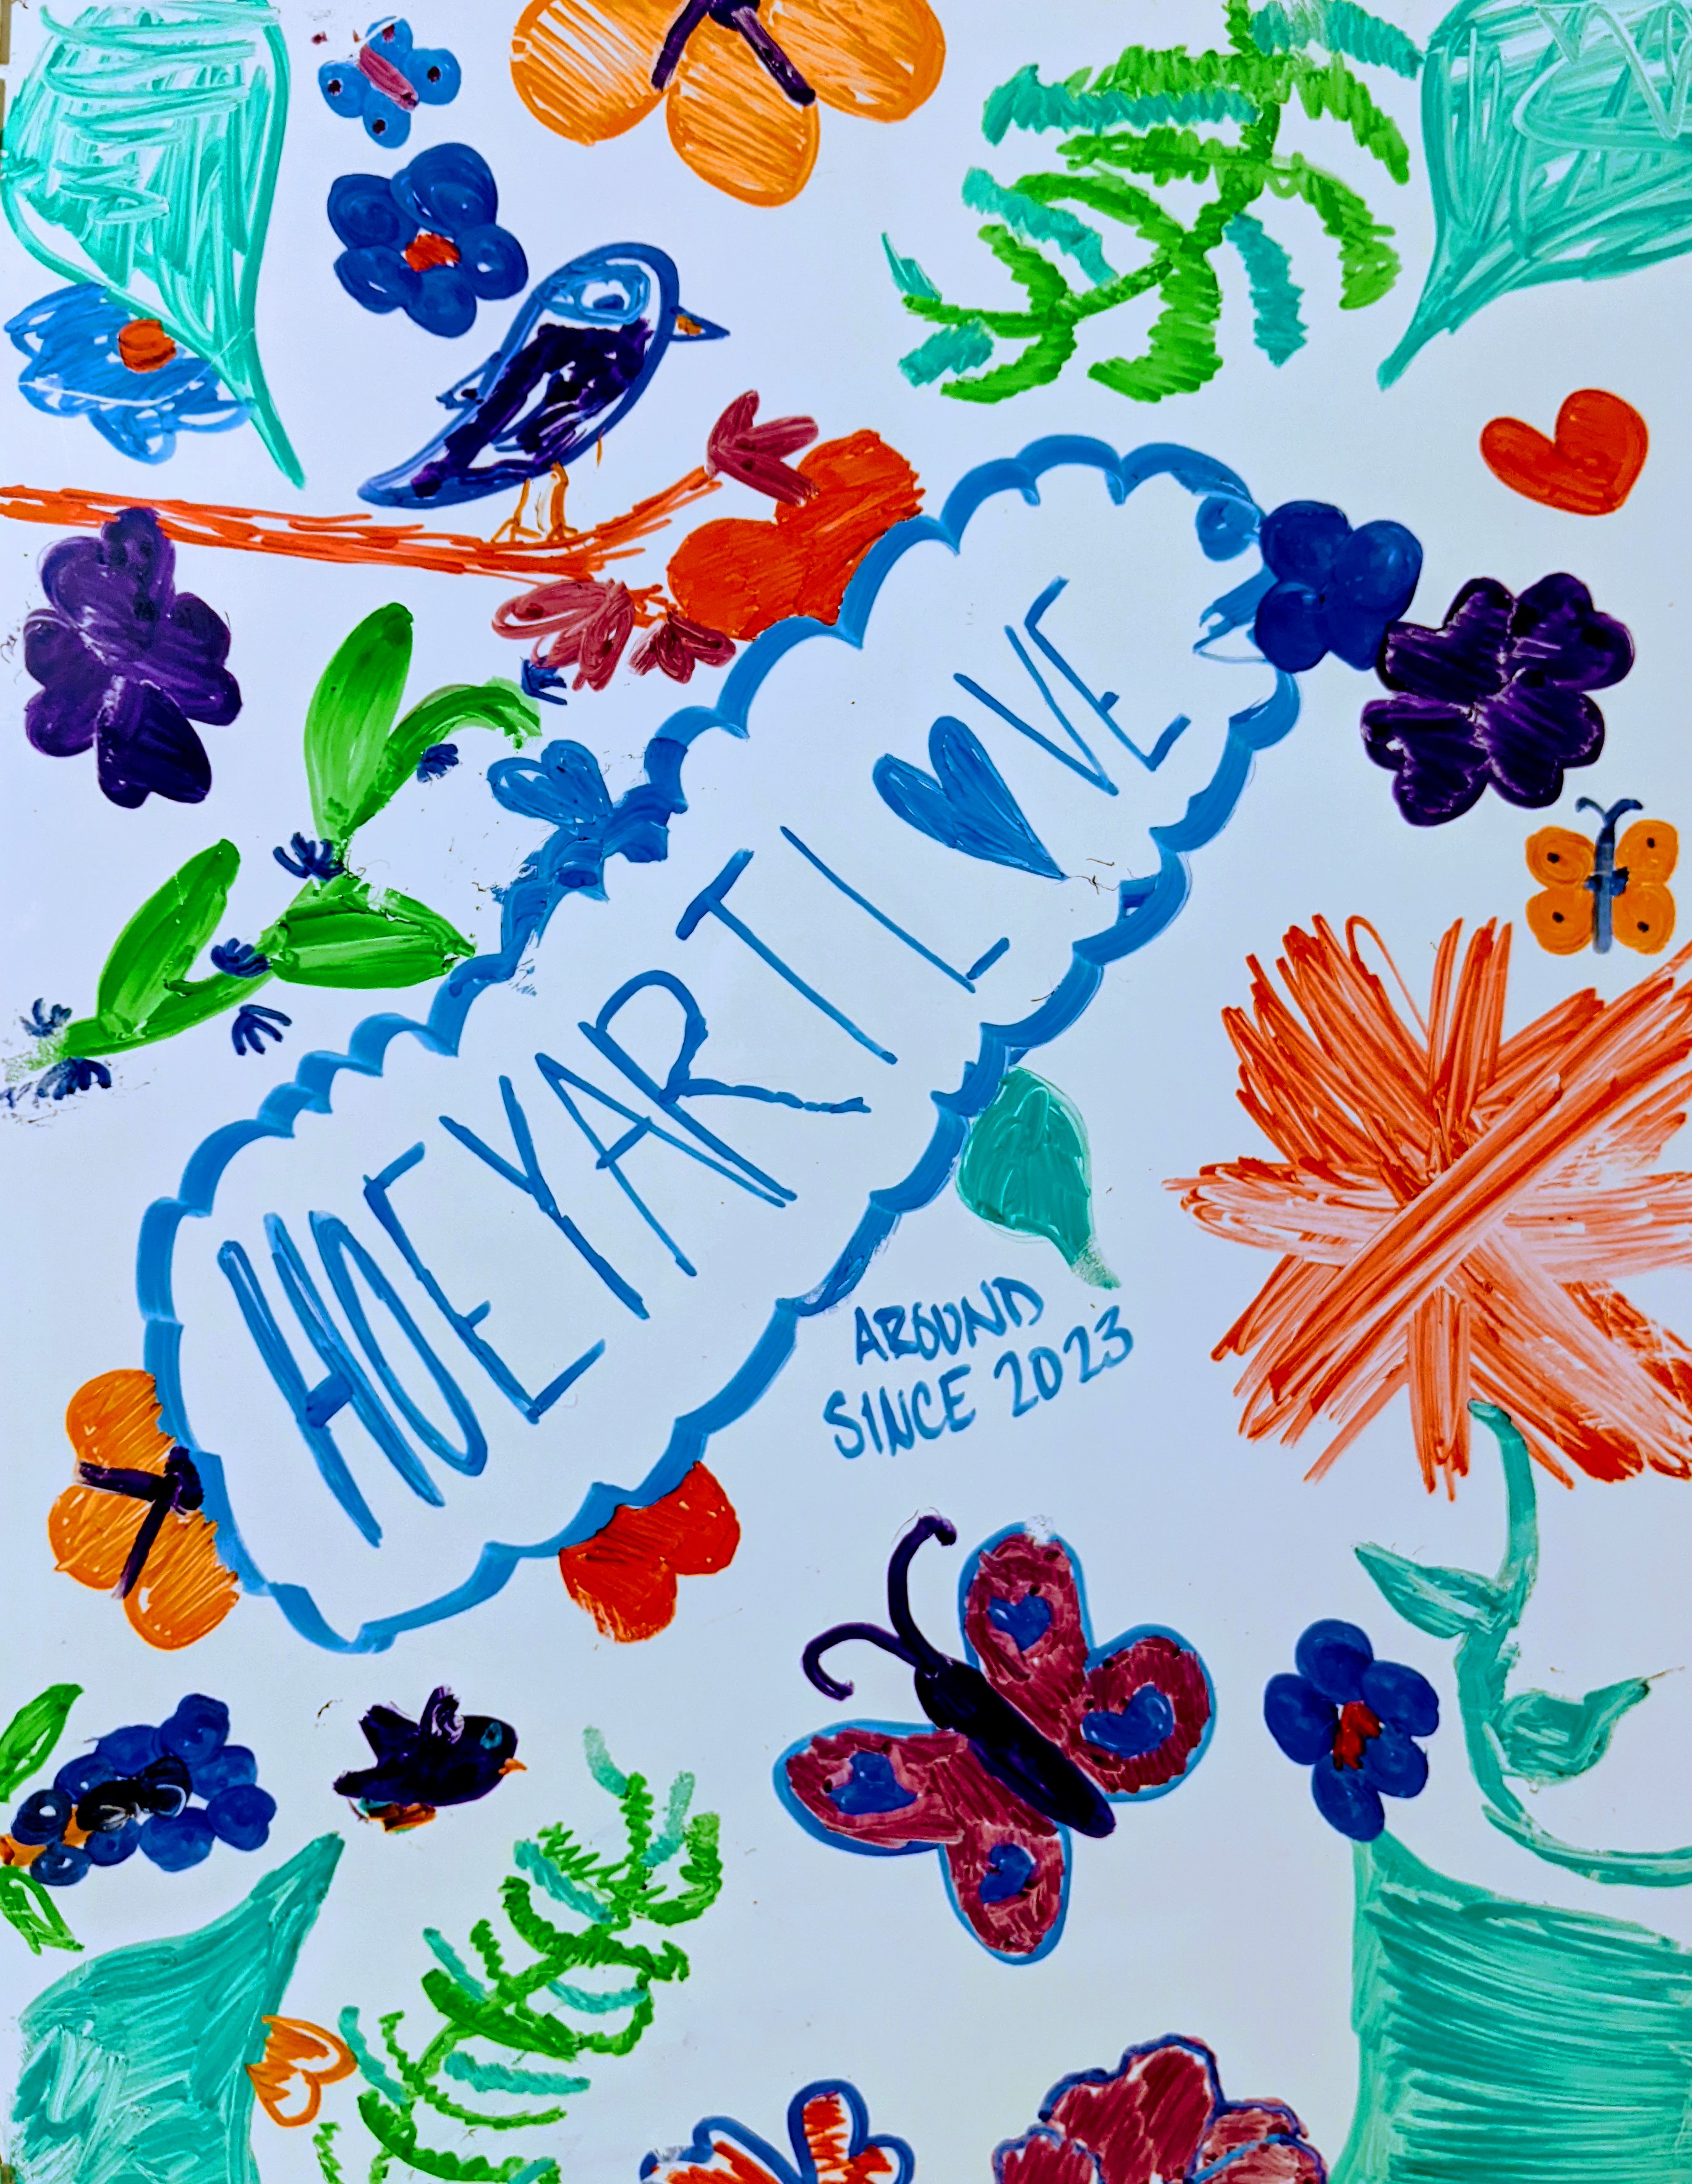 HOEYART L♥VE
AROUND
SINCE 2023